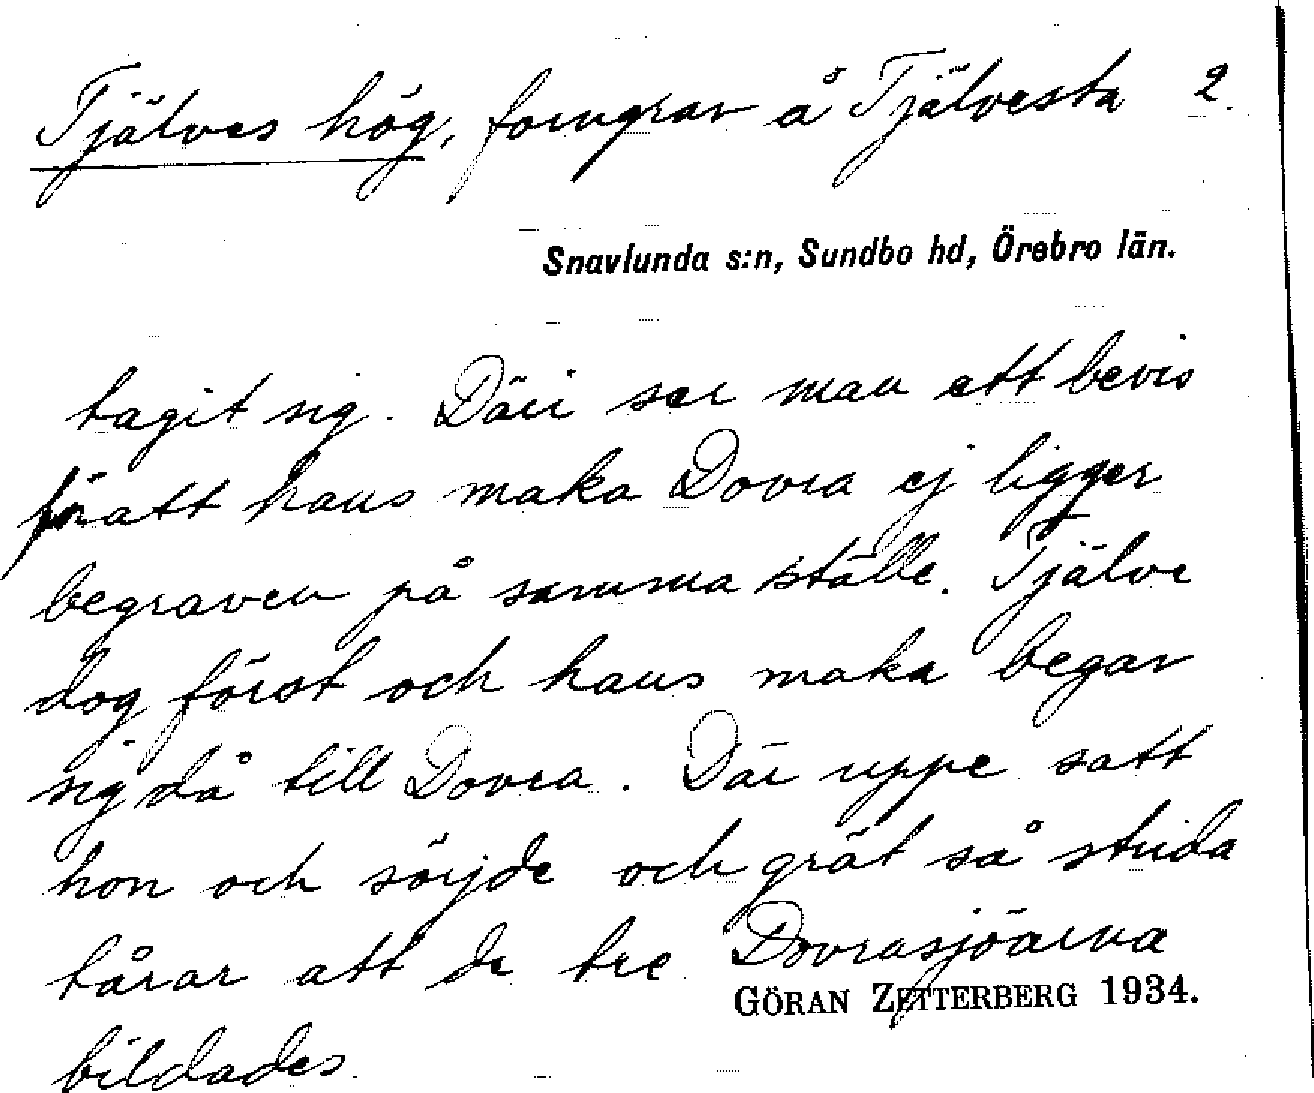 Tjälves hög, forngrav å Tjälvesta 2.
Snavlunda s:n, Sundbo hd, Örebro län.
tagit sig. Däri ser man ett bevis
för att hans maka Dovra ej ligger
begraven på samma ställe. Tjälve
dog först och hans maka begav
sig då till Dovra. Där uppe satt
hon och sörjde och grät så strida
tårar att de tre Dovrasjöarna
GÖRAN ZETTERBERG 1934.
bildades.